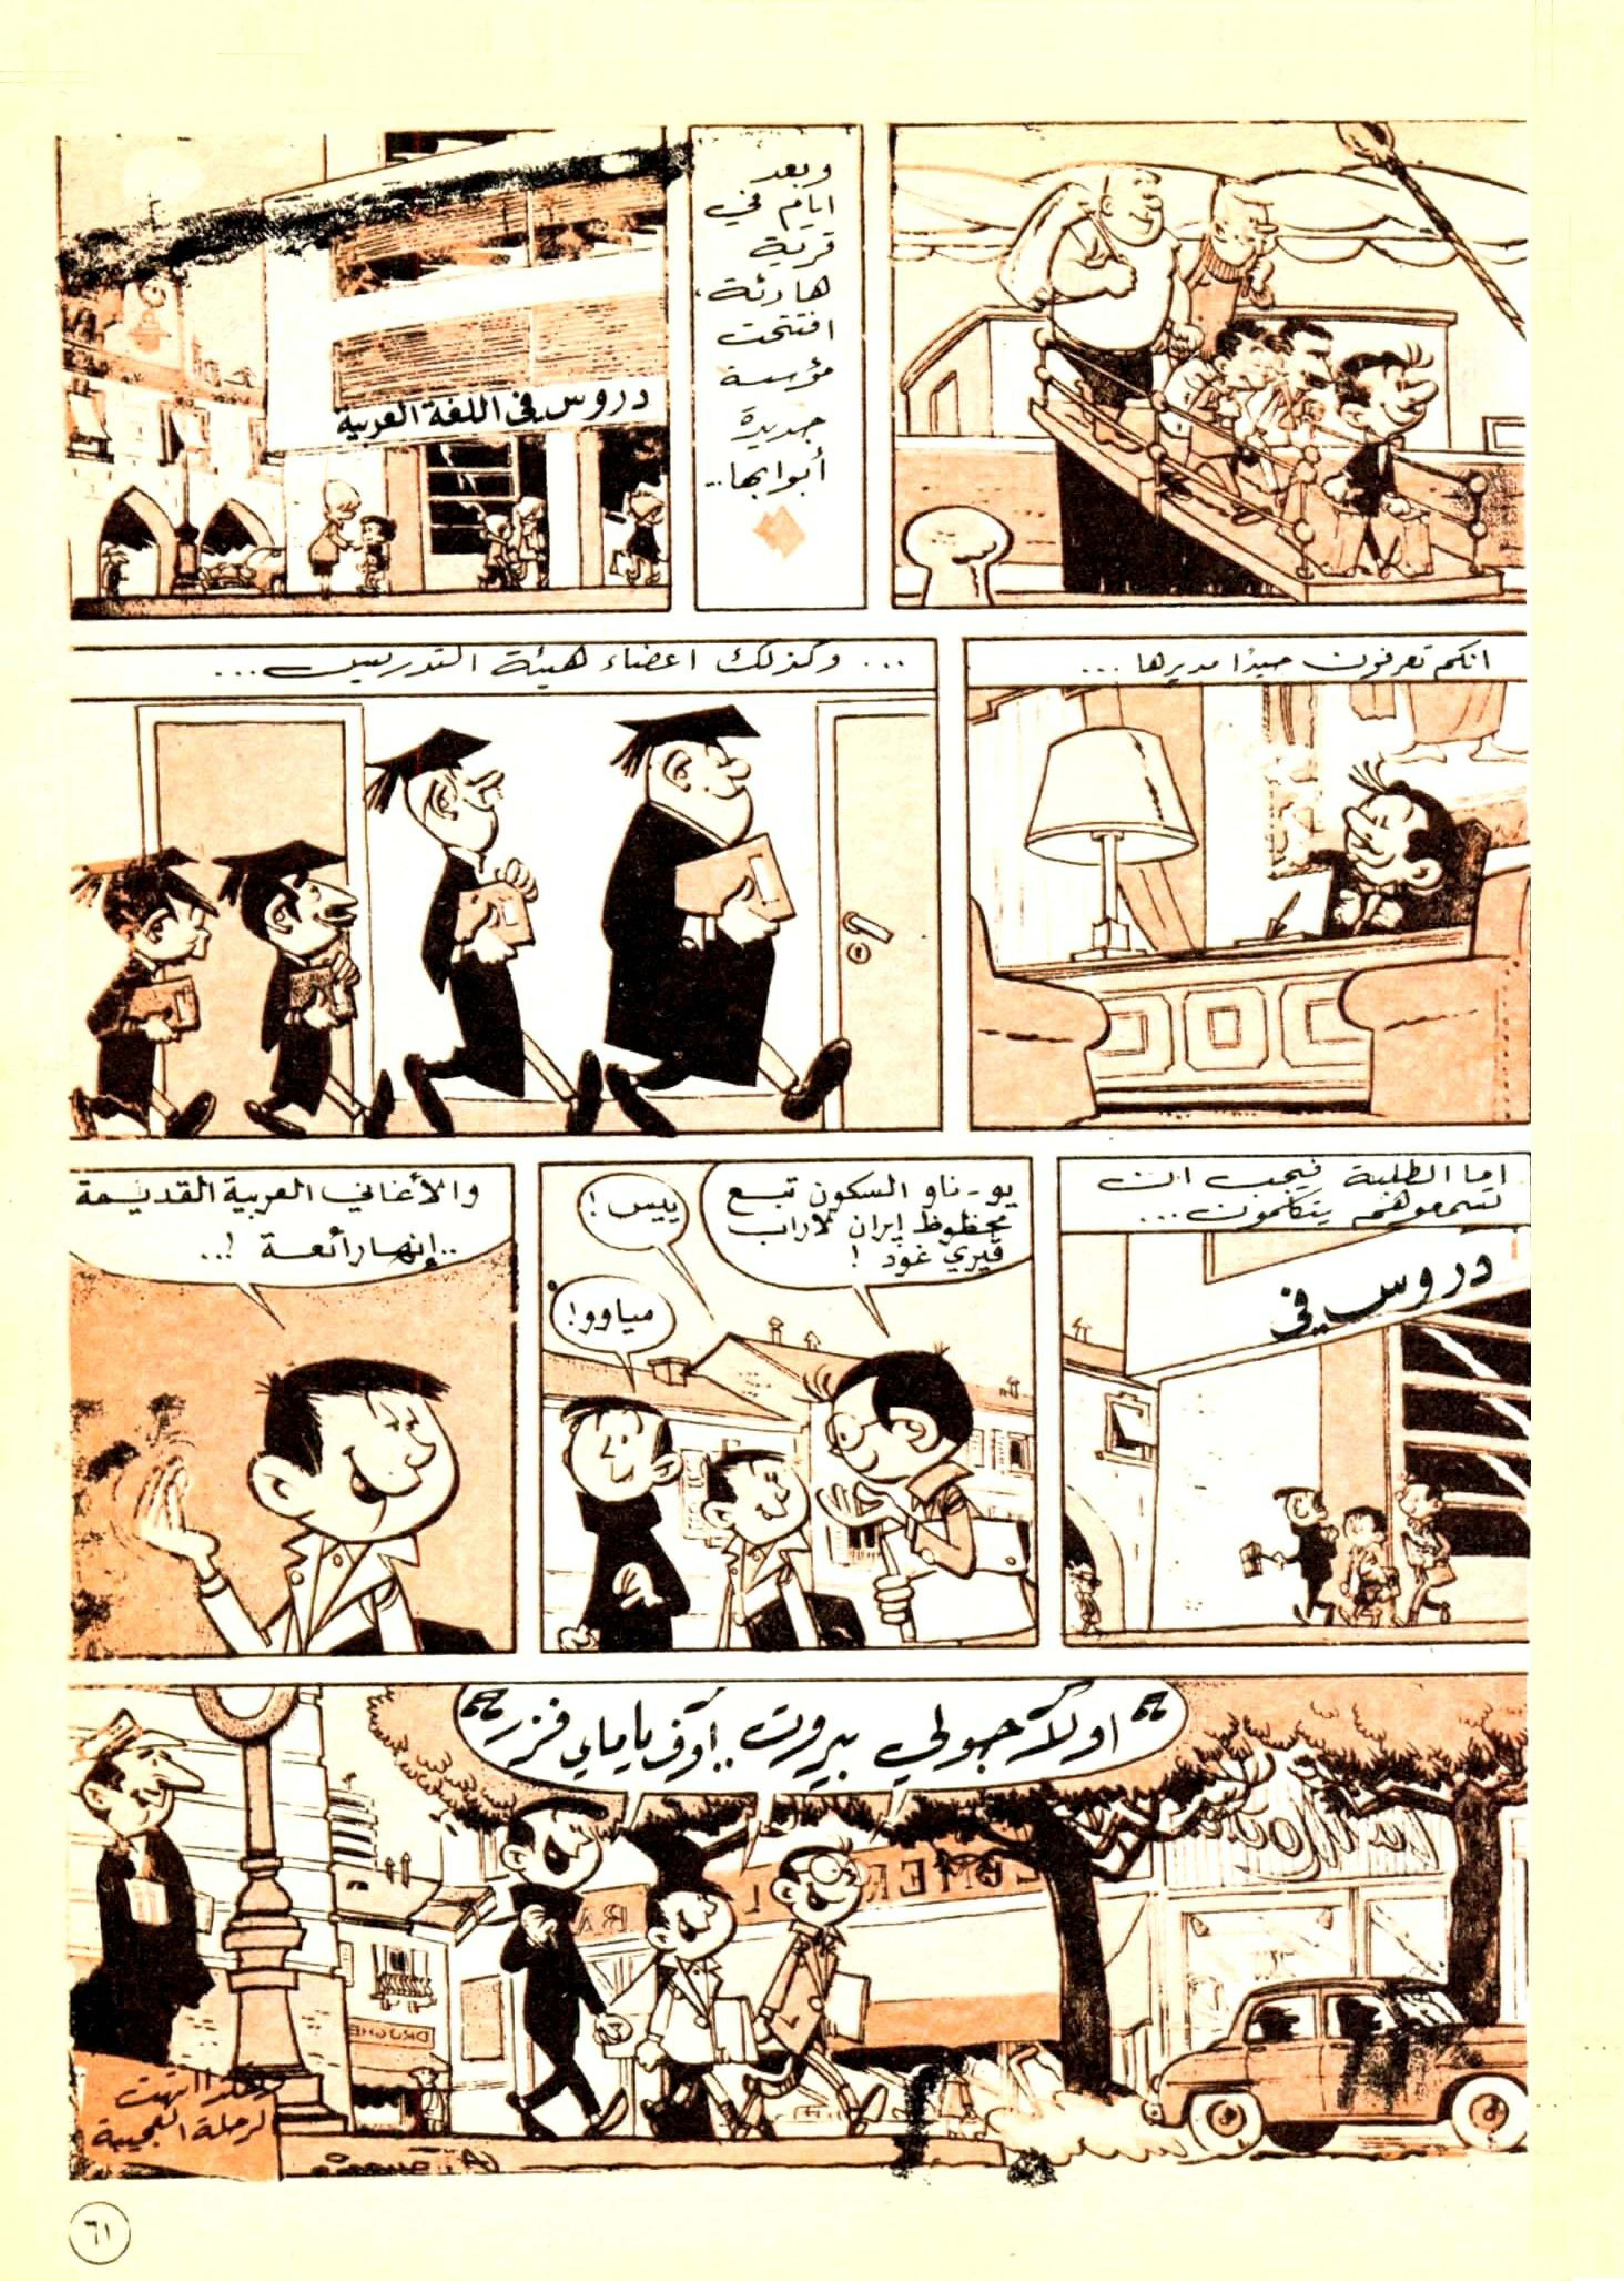 وبعد
ايام في
قرية
هادئة،
افتتحت
مؤسسة
جديدة
أبوابها..
دروس في اللغة العربية
انكم تعرفون جيدًا مديرها ...
... وكذلك اعضاء هيئة التدريس ...
اما الطلبة فيجب ان
تسمعوهم يتكلمون ...
دروس في
يو-ناو السكون تبع
محظوظ إيران لاراب
فيري غود !
ييس !
مياوو !
والأغاني العربية القديمة
..إنها رائعة !..
"اولاد جولي بيروت..اوف ياماي فزر"
وهكذا انتهت
الرحلة العجيبة
٦١